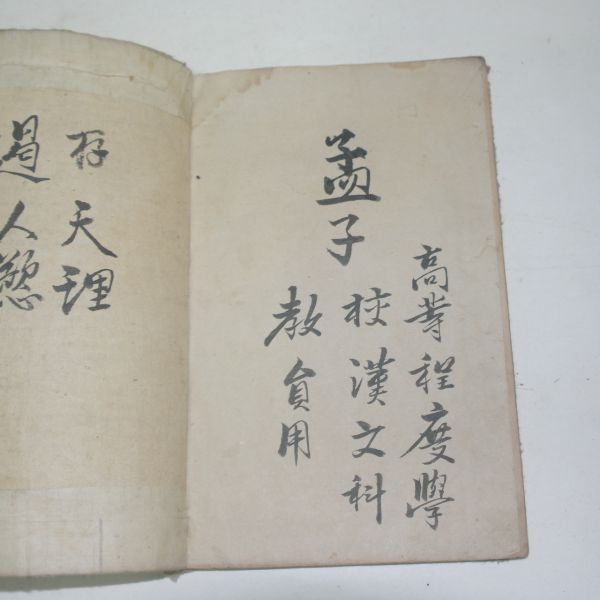 高等程度學
校漢文科
孟子
教員用
存天理
遏人慾